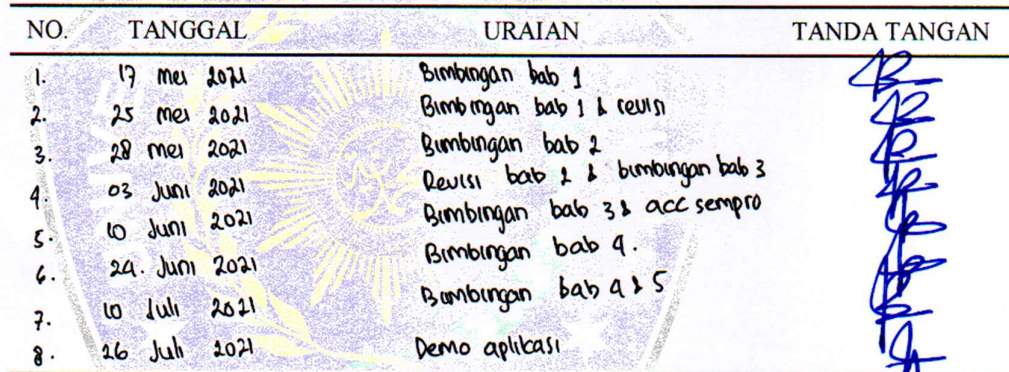 NO. TANGGAL URAIAN TANDA TANGAN
1. 17 mei 2021 Bimbingan bab 1
2. 25 mei 2021 Bimbingan bab 1 & revisi
3. 28 mei 2021 Bimbingan bab 2
4. 03 Juni 2021 Revisi bab 2 & bimbingan bab 3
5. 10 Juni 2021 Bimbingan bab 3 & acc sempro
6. 24. Juni 2021 Bimbingan bab 4.
7. 10 Juli 2021 Bimbingan bab 4 & 5
8. 26 Juli 2021 Demo aplikasi